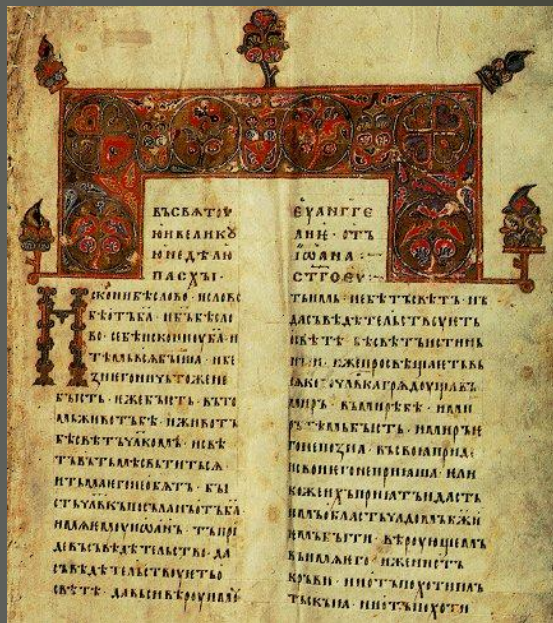 ВЪСВѦТОУ
ЮИВЕЛИКꙊ
ЮНЕДѢЛЮ
ПАСХЫ·
ИСКОНИБѢСЛОВО·ИСЛОВО
БѢОТЪБА·ИБЪБѢСЛО
ВО·СЕБѢИСКОНИОУБА·И
ТѢМЬВСѦБЫША·ИБЕ
ЗНЕГОНИЧЬТОЖЕНЕ
БЫСТЬ·ѤЖЕБЫСТЬ·ВЪТО
МЬЖИВОТЪБѢ·ИЖИВОТЪ
БѢСВѢТЪЧЛКОМЪ·ИСВѢ
ТЪВЪТЬМѢСВЬТИТЬСѦ·
ИТЬМАѤГОНЕОБѦТЪ·БЫ
СТЬЧЛВКЪПОСЪЛАНЪОТЪБА
ИМѦѤМОУИОАНЪ·ТЪПРИ
ДЕВЪСЪВѢДѢТЕЛЬСТВО·ДА
СЪВѢДѢТЕЛЬСТВОУѤТЬО
СВѢТѢ·ДАВЬСИВѢРОУИМОУ
ЕУАНГГЕ
ЛИѤ·ОТЪ
ІѠАНА·
СТГОЕУ·
ТЬИМЬ·НЕБѢТЪСВѢТЪ·НЪ
ДАСЪВѢДѢТЕЛЬСТВОУѤТЬ
ОСВѢТѢ·БѢСВѢТЪИСТИНЬ
НЫИ·ИЖЕПРОСВѢЩАѤТЬВЬ
СѦКОГОЧЛВКАГРѦДОУЩАВЪ
МИРЪ·ВЪМИРѢБѢ·ИМИ
РЪТѢМЬБЫСТЬ·ИМИРЪѤ
ГОНЕПОЗНА·ВЪСВОꙖПРИДЕ
ИСВОИѤГОНЕПРИꙖША·ѤЛИ
КОЖЕИХЪПРИꙖТЪИДАСТЬ
ИМЪОБЛАСТЬЧАДОМЪБЖИ
ѤМЪБЫТИ·ВѢРОУЮЩЕМЪ
ВЪИМѦѤГО·ИЖЕНИОТЪ
КРЪВИ·НИОТЪПОХОТИПЛЬ
ТЬСКЫꙖ·НИОТЪПОХОТИ